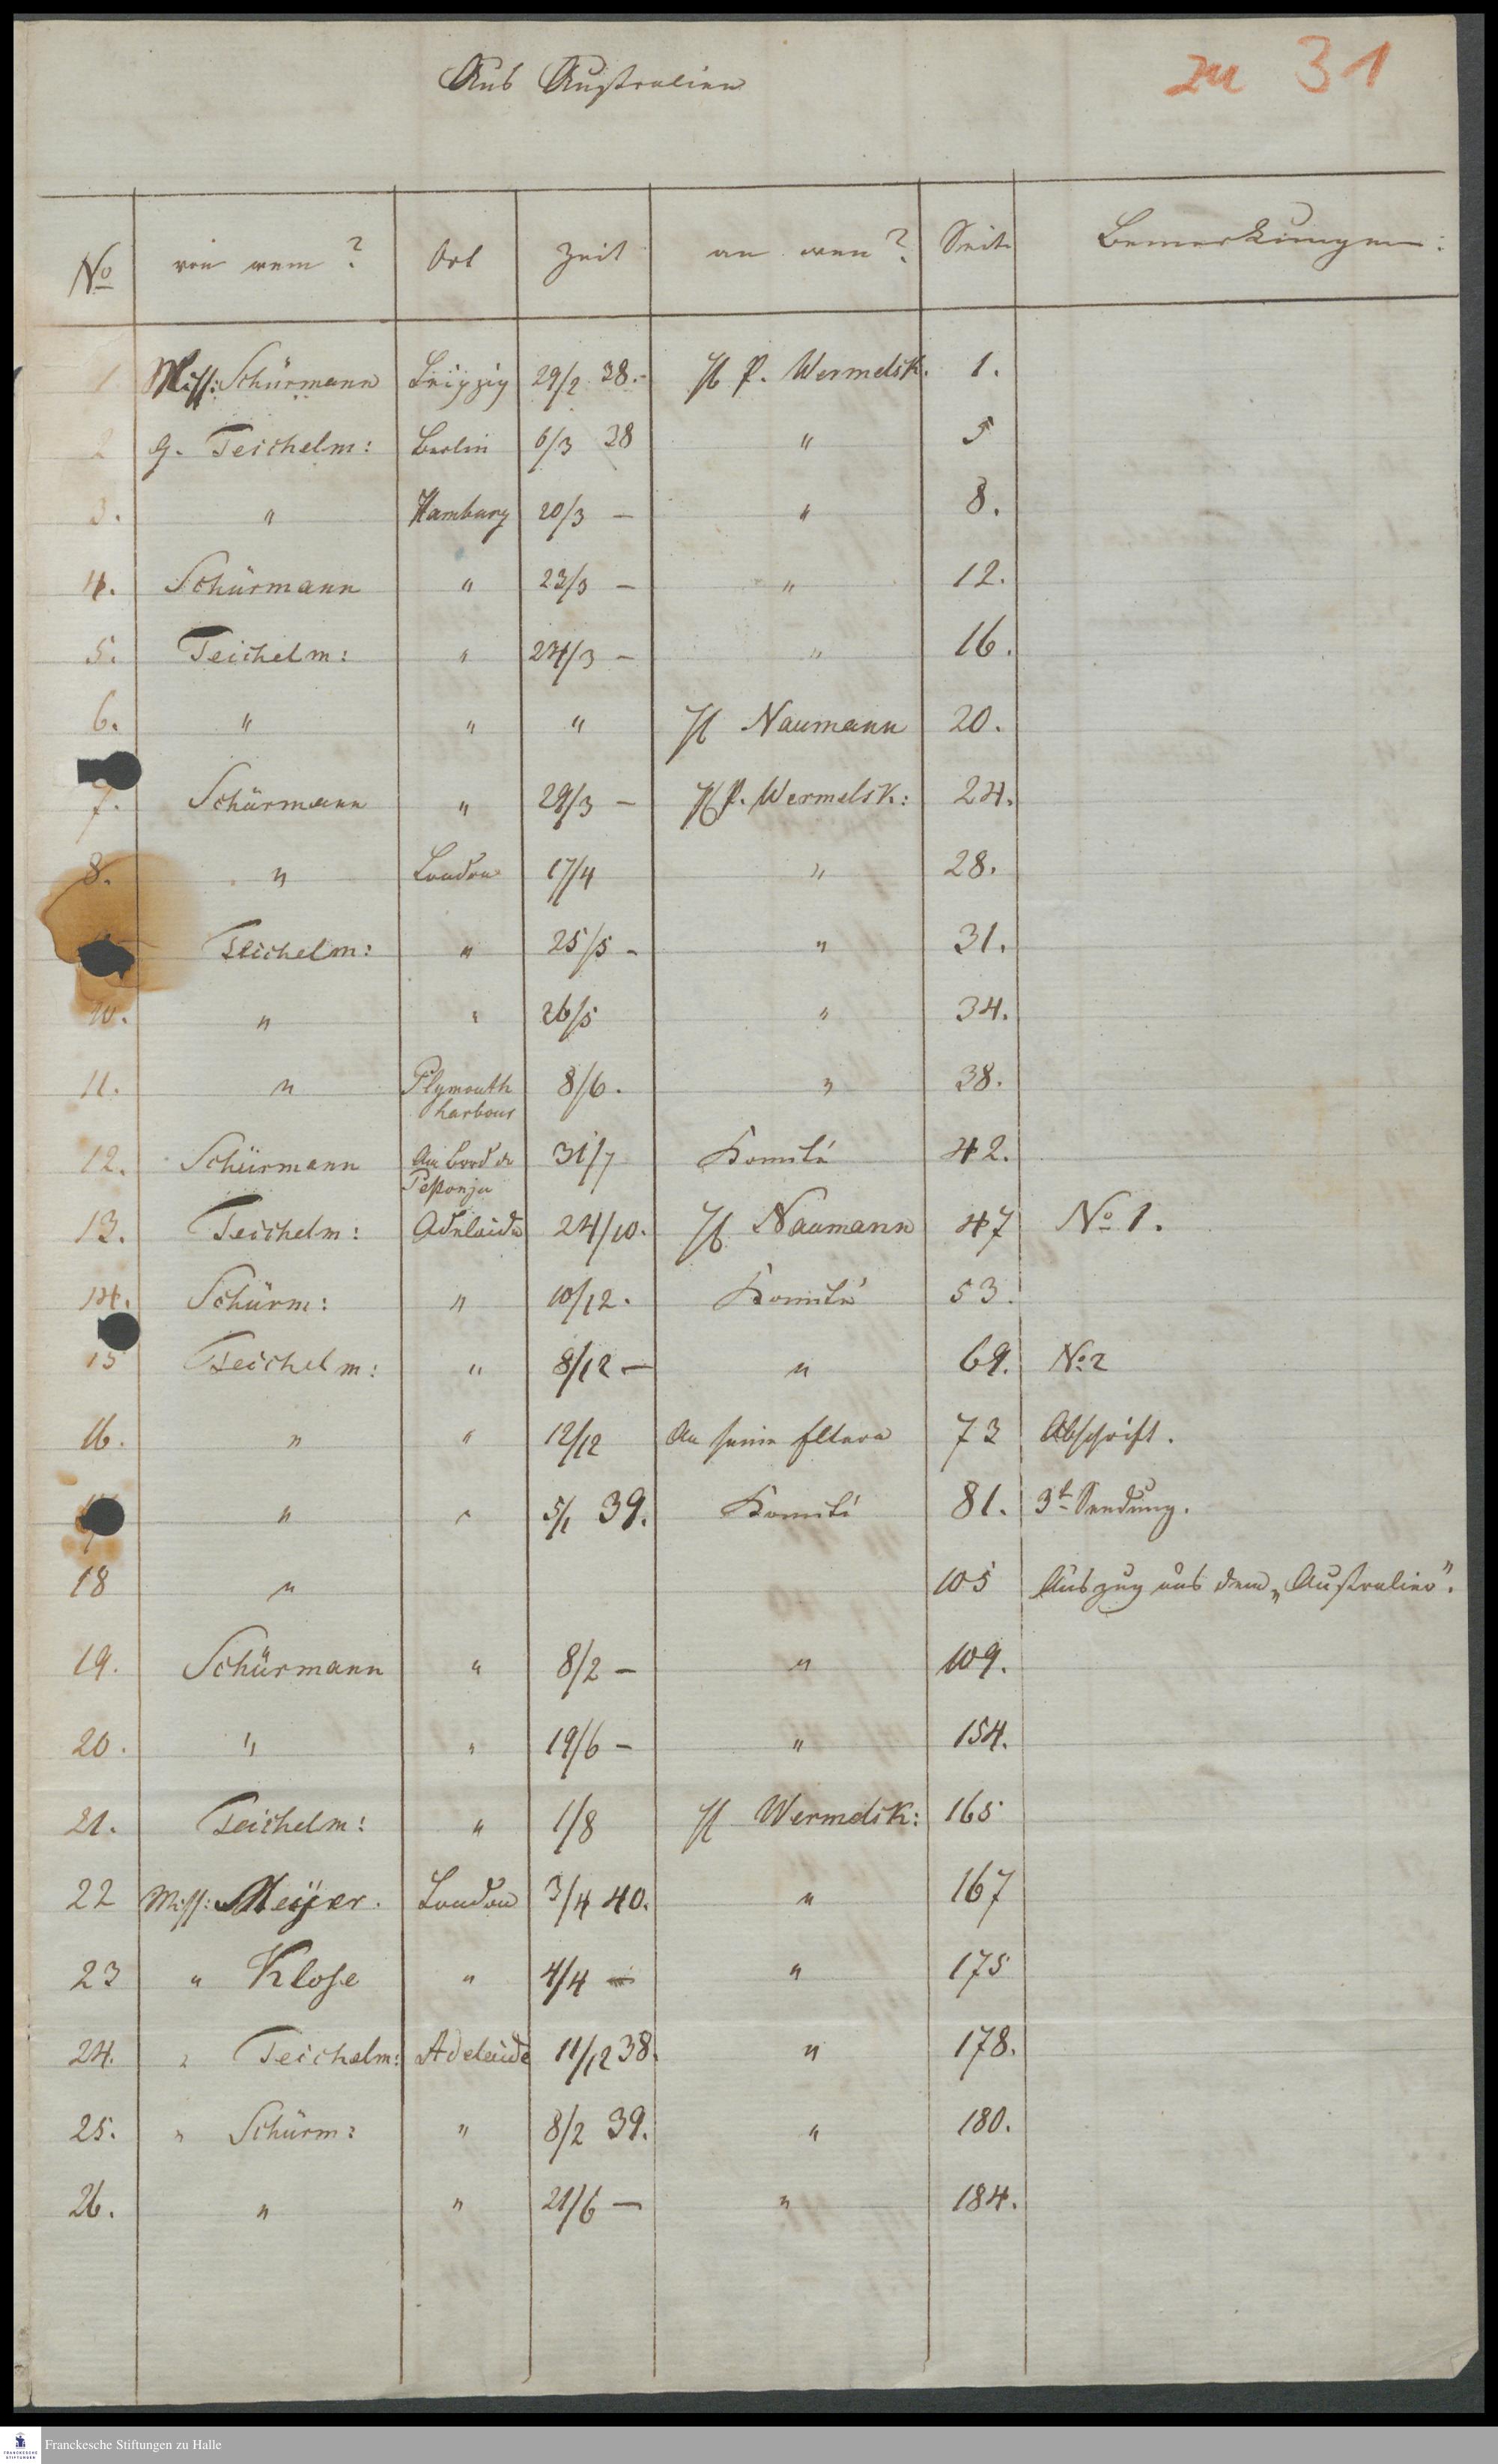 Aus Australien
zu 31
No von wem? Ort Zeit an wen? Seite Bemerkungen:
1 Miss: Schürmann Leipzig 29/2 38.- H P. Wermelsk. 1.
2 G. Teichelm: Berlin 6/3 38 " 5
3. " Hamburg 20/3 — " 8.
4. Schürmann " 23/3 — " 12.
5. Teichelm: " 24/3 — " 16.
6. " " " H Naumann 20.
7. Schürmann " 29/3 — H P. Wermelsk: 24.
8. " London 17/4 " 28.
Teichelm: " 25/5 - " 31.
10. " " 26/5 " 34.
11. " Plymouth 8/6. " 38.
harbour
12. Schürmann An Bord d 31/7 Komité 42.
13. Teichelm: Adelaide 24/10. H Naumann 47 No 1.
14. Schürm: " 10/12. Komité 53.
15 Teichelm: " 8/12 — " 69. No 2
16. " " 12/12 An seine Eltern 73 Abschrift.
" " 5/1 39. Komité 81. 3t Sendung.
18 " 105 Auszug aus dem „Australier".
19. Schürmann " 8/2 — " 109.
20. " " 19/6 — " 154.
21. Teichelm: " 1/8 H Wermelsk: 165
22 Miss: Meÿer. London 3/4 40. " 167
23 " Klose " 4/4 — " 175
24. " Teichelm: Adelaide 11/12 38. " 178.
25. " Schürm: " 8/2 39. " 180.
26. " " 21/6 — " 184.
Franckesche Stiftungen zu Halle